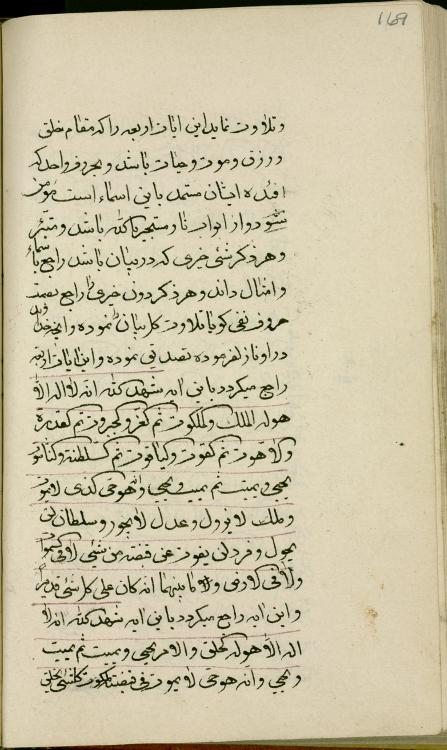 169
و تلاوت نماید این ایات اربعه را که مقام خلق
و رزق و موت و حیات باشد و بحروف واحد که
افئده ایشان مستمد باین اسماء است مؤمن
شود و از ابواب نار مستجیر بالله باشد و
و هر ذکر شئ خیری که در بیان باشد راجع
و امثال داند و هر ذکر دون خیری را راجع
حروف نفی گویا تلاوت کل بیان را نموده و انچه خداوند
در او نازل فرموده تصدیق نموده و این ایات
راجع میگردد باین ایه شهد الله انه لا اله الا
هو له الملک و الملکوت ثم العز و الجبروت ثم القدرة
و اللاهوت ثم القوت و الیاقوت ثم السلطنة و الناسوت
یحیی و یمیت ثم یمیت و یحیی و انه هو حی الذی لا یموت
و ملک لا یزول و عدل لا یجور و سلطان لن
یحول و فرد لن یفوت عن قبضته من شئ لا فی السموات
و لا فی الارض و لا ما بینهما انه کان علی کل شئ قدیرا
و این ایه راجع میگردد باین ایه شهد الله انه لا
اله الا هو له الخلق و الامر یحیی و یمیت ثم یمیت
و یحیی و انه هو حی لا یموت فی قبضته ملکوت کل شئ یخلق